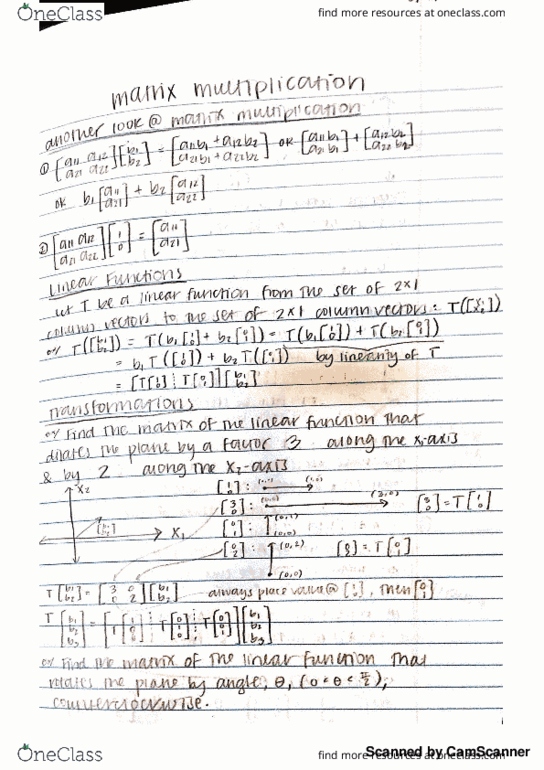 OneClass
find more resources at oneclass.com
matrix multiplication
another look @ matrix multiplication
① [a11 a12 a21 a22][b1 b2] = [a11b1 + a12b2 a21b1 + a22b2] or [a11b1 a21b1] + [a12b2 a22b2]
or b1[a11 a21] + b2[a12 a22]
② [a11 a12 a21 a22][1 0] = [a11 a21]
Linear Functions
let T be a linear function from the set of 2x1
column vectors to the set of 2x1 column vectors:
ex T([b1 b2]) = T(b1[1 0] + b2[0 1]) = T(b1[1 0]) + T(b2[0 1])
= b1T([1 0]) + b2T([0 1]) by linearity of T
= [T[1 0] ⋮ T[0 1]][b1 b2]
Transformations
ex Find the matrix of the linear function that
dilates the plane by a factor 3 along the x1-axis
& by 2 along the x2-axis
x2
x1
[b1 b2]
[1 0]:
[3 0]: (0,0) (3,0) [3 0] = T[1 0]
[0 1]: (0,1) (0,0)
[0 2]: (0,2) (0,0) = T[0 1]
T[b1 b2] = [3 0 0 2][b1 b2] always place value @ [1 0], then [0 1]
T[b1 b2 b3] = [T[1 0 0] ⋮ T[0 1 0] ⋮ T[0 0 1]][b1 b2 b3]
ex Find the matrix of the linear function that
rotates the plane by angle, θ, (0 < θ < π/2),
counterclockwise.
Scanned by CamScanner
OneClass
find more resources at oneclass.com